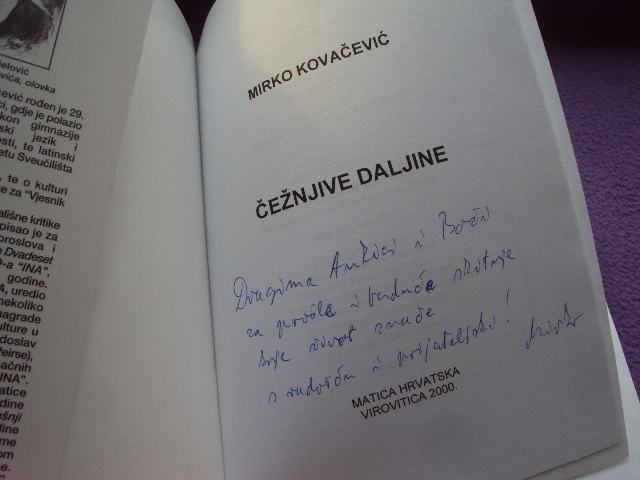 elović
vića, olovka
ćević rođen je 29.
ci, gdje je polazio
kon gimnazije
ski jezik i
osti, te latinski
etu Sveučilišta
, te o kulturi
e za "Vjesnik
ališne kritike
pisao je za
proslova i
e Dvadeset
O-a "INA",
godine.
A, uredio
nekoliko
nagrade
ulture u
doslav
Peirse),
načnih
INA".
atice
dine
ušnji
dine
me
om
e.
MIRKO KOVAČEVIĆ
ČEŽNJIVE DALJINE
Dragima Ankici i Boži
za prošle i buduće skitnje
koje život znače
s radošću i prijateljski!
Mirko
MATICA HRVATSKA
VIROVITICA 2000.